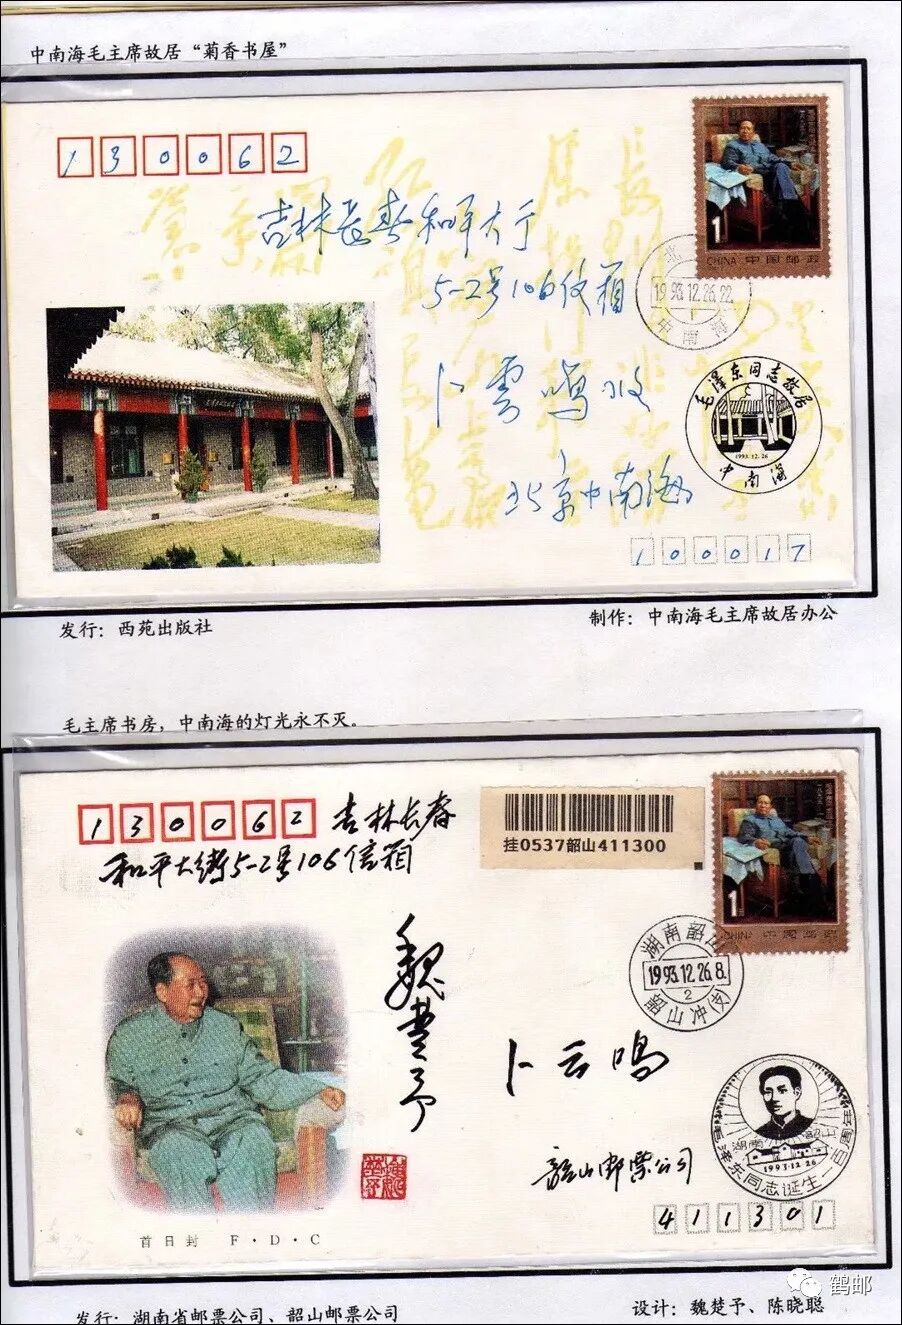 中南海毛主席故居“菊香书屋”
130062
吉林长春和平大厅
5-2号106信箱
卜雲鳴收
北京中南海
100017
1
CHINA 中国邮政
北京
1993.12.26.22
中南
毛泽东同志故居
1993.12.26
中南海
发行：西苑出版社
制作：中南海毛主席故居办公
毛主席书房，中南海的灯光永不灭。
130062
吉林长春
和平大街5-2号106信箱
挂0537韶山411300
1
CHINA 中国邮政
湖南韶山
1993.12.26.8
2
韶山冲(支)
魏楚予
卜云鸣
韶山邮票公司
411301
毛泽东同志诞生一百周年
1993.12.26
首日封 F·D·C
鹤邮
发行：湖南省邮票公司、韶山邮票公司
设计：魏楚予、陈晓聪